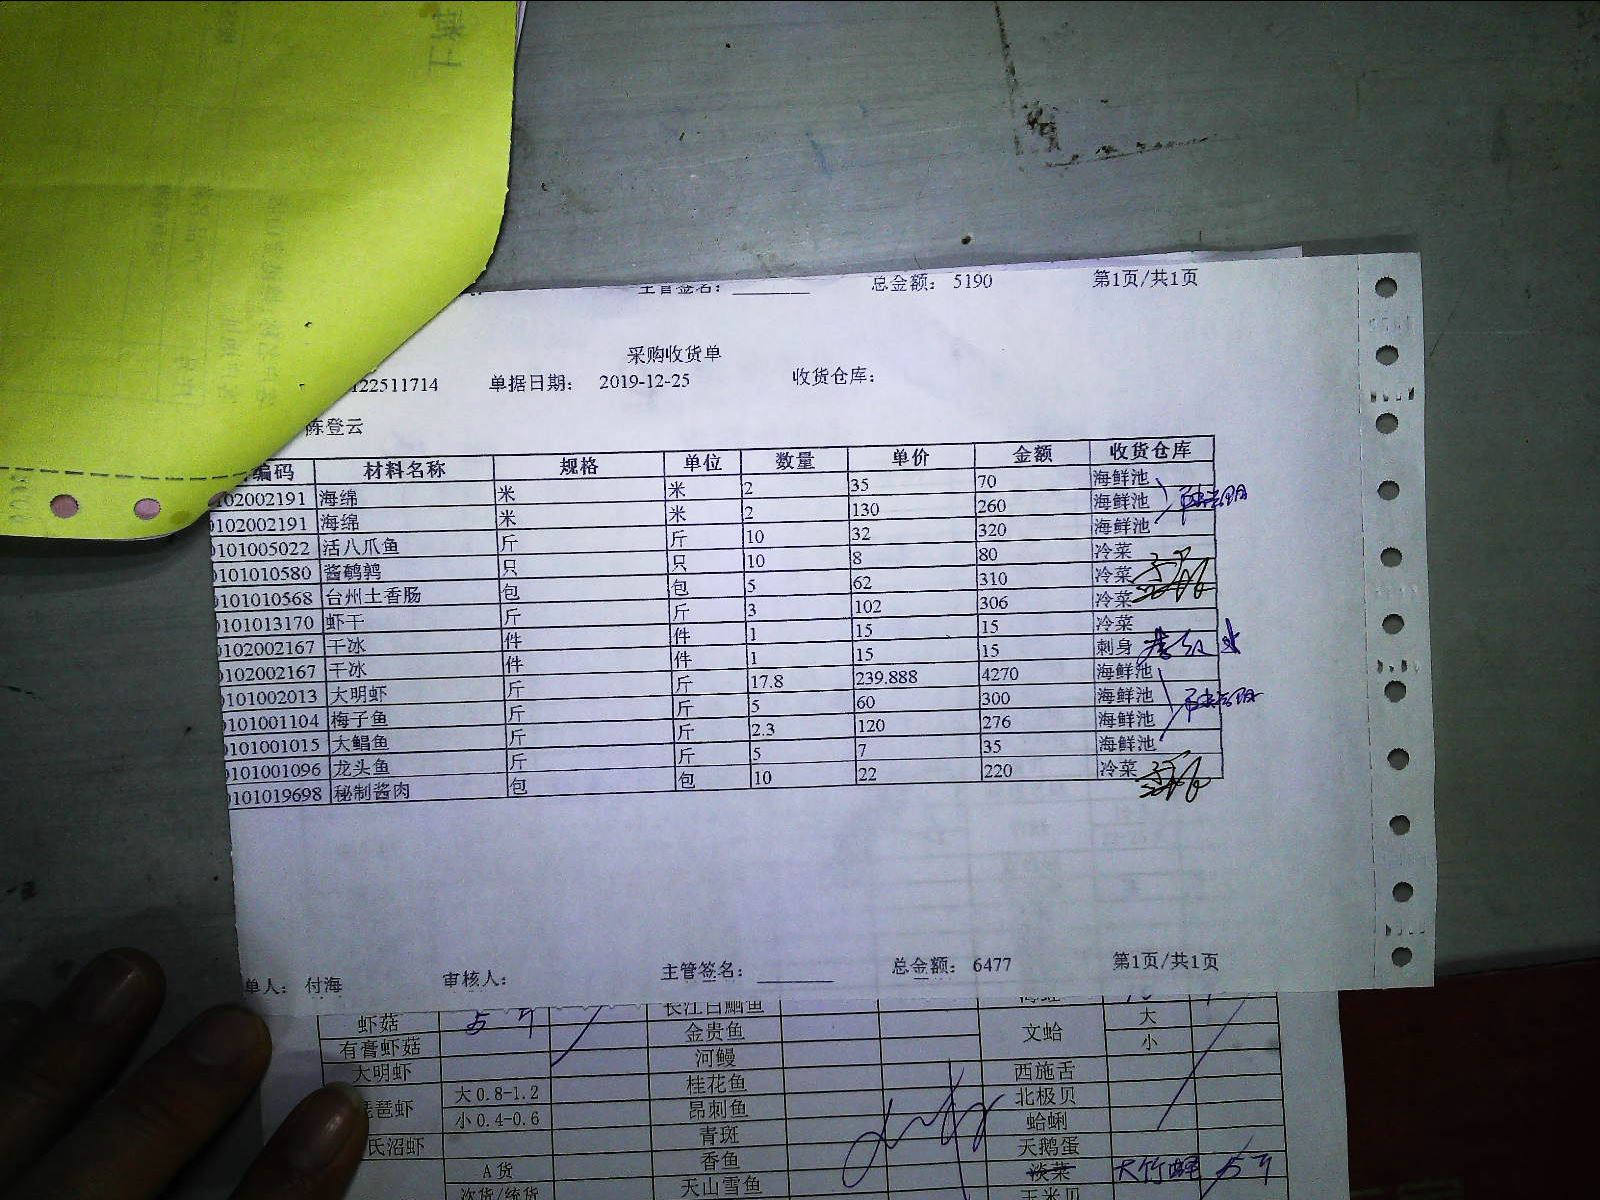 总金额： 5190 第1页/共1页
采购收货单
122511714 单据日期： 2019-12-25 收货仓库：
陈登云
编码 材料名称 规格 单位 数量 单价 金额 收货仓库
102002191 海绵 米 米 2 35 70 海鲜池
0102002191 海绵 米 米 2 130 260 海鲜池
0101005022 活八爪鱼 斤 斤 10 32 320 海鲜池
0101010580 酱鹌鹑 只 只 10 8 80 冷菜
0101010568 台州土香肠 包 包 5 62 310 冷菜
0101013170 虾干 斤 斤 3 102 306 冷菜
0102002167 干冰 件 件 1 15 15 冷菜
0102002167 干冰 件 件 1 15 15 刺身
0101002013 大明虾 斤 斤 17.8 239.888 4270 海鲜池
0101001104 梅子鱼 斤 斤 5 60 300 海鲜池
0101001015 大鲳鱼 斤 斤 2.3 120 276 海鲜池
0101001096 龙头鱼 斤 斤 5 7 35 海鲜池
0101019698 秘制酱肉 包 包 10 22 220 冷菜
单人： 付海 审核人： 主管签名： 总金额： 6477 第1页/共1页
虾菇 5斤 金贵鱼 文蛤 大
有膏虾菇 河鳗 小
大明虾 桂花鱼 西施舌
琵琶虾 大0.8-1.2 昂刺鱼 北极贝
小0.4-0.6 青斑 蛤蜊
氏沼虾 香鱼 天鹅蛋
A货 天山雪鱼 淡菜 大竹蛏 5斤